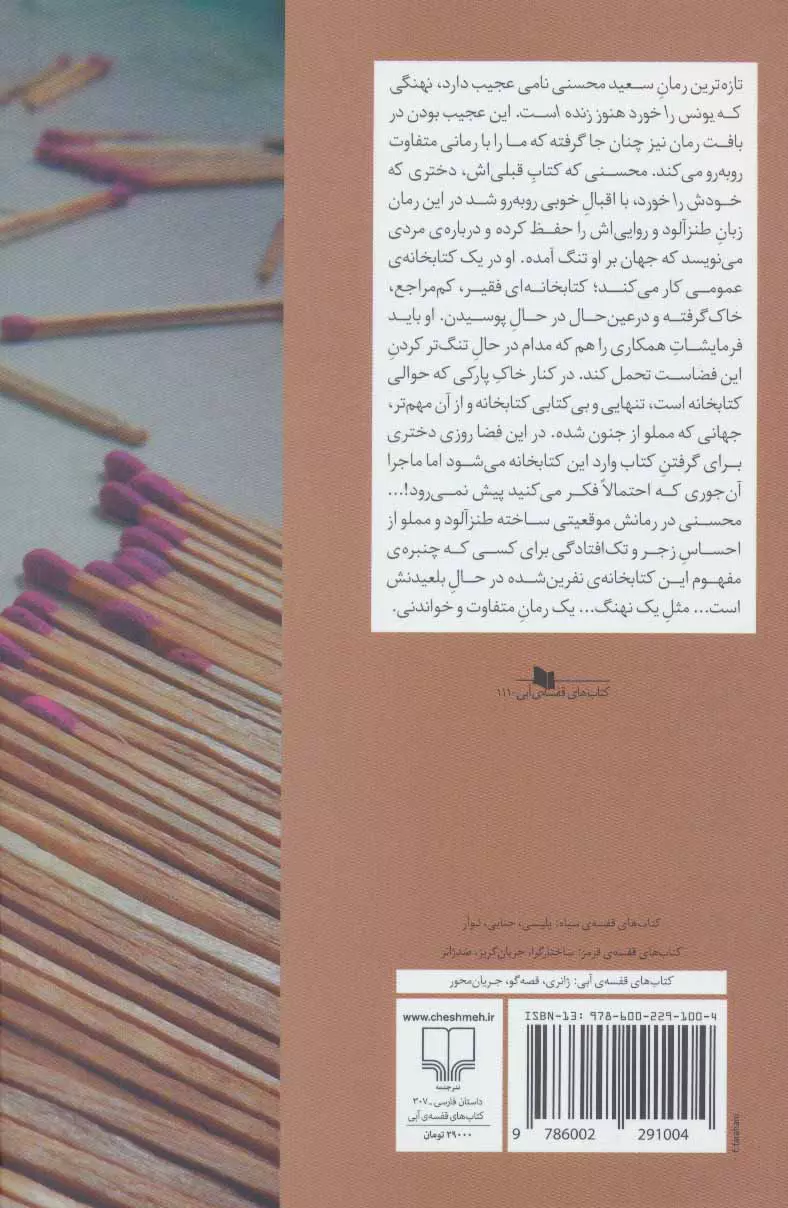 تازه‌ترین رمانِ سعید محسنی نامی عجیب دارد، نهنگی
که یونس را خورد هنوز زنده است. این عجیب بودن در
بافت رمان نیز چنان جا گرفته که ما را با رمانی متفاوت
روبه‌رو می‌کند. محسنی که کتابِ قبلی‌اش، دختری که
خودش را خورد، با اقبالِ خوبی روبه‌رو شد در این رمان
زبانِ طنزآلود و روایی‌اش را حفظ کرده و درباره‌ی مردی
می‌نویسد که جهان بر او تنگ آمده. او در یک کتابخانه‌ی
عمومی کار می‌کند؛ کتابخانه‌ای فقیر، کم‌مراجع،
خاک‌گرفته و درعین‌حال در حالِ پوسیدن. او باید
فرمایشاتِ همکاری را هم که مدام در حالِ تنگ‌تر کردنِ
این فضاست تحمل کند. در کنار خاکِ پارکی که حوالی
کتابخانه است، تنهایی و بی‌کتابی کتابخانه و از آن مهم‌تر،
جهانی که مملو از جنون شده. در این فضا روزی دختری
برای گرفتنِ کتاب وارد این کتابخانه می‌شود اما ماجرا
آن‌جوری که احتمالاً فکر می‌کنید پیش نمی‌رود!...
محسنی در رمانش موقعیتی ساخته طنزآلود و مملو از
احساسِ زجر و تک‌افتادگی برای کسی که چنبره‌ی
مفهوم این کتابخانه‌ی نفرین‌شده در حالِ بلعیدنش
است... مثلِ یک نهنگ... یک رمانِ متفاوت و خواندنی.
کتاب‌های قفسه‌ی آبی-۱۱۱
کتاب‌های قفسه‌ی سیاه: پلیسی، جنایی، نوآر
کتاب‌های قفسه‌ی قرمز: ساختارگرا، جریان‌گریز، ضدژانر
کتاب‌های قفسه‌ی آبی: ژانری، قصه‌گو، جریان‌محور
www.cheshmeh.ir
نشرچشمه
داستان فارسی ـ ۳۰۷
کتاب‌های قفسه‌ی آبی
۲۹۰۰۰ تومان
ISBN-13: 978-600-229-100-4
9 786002 291004
f.farahani